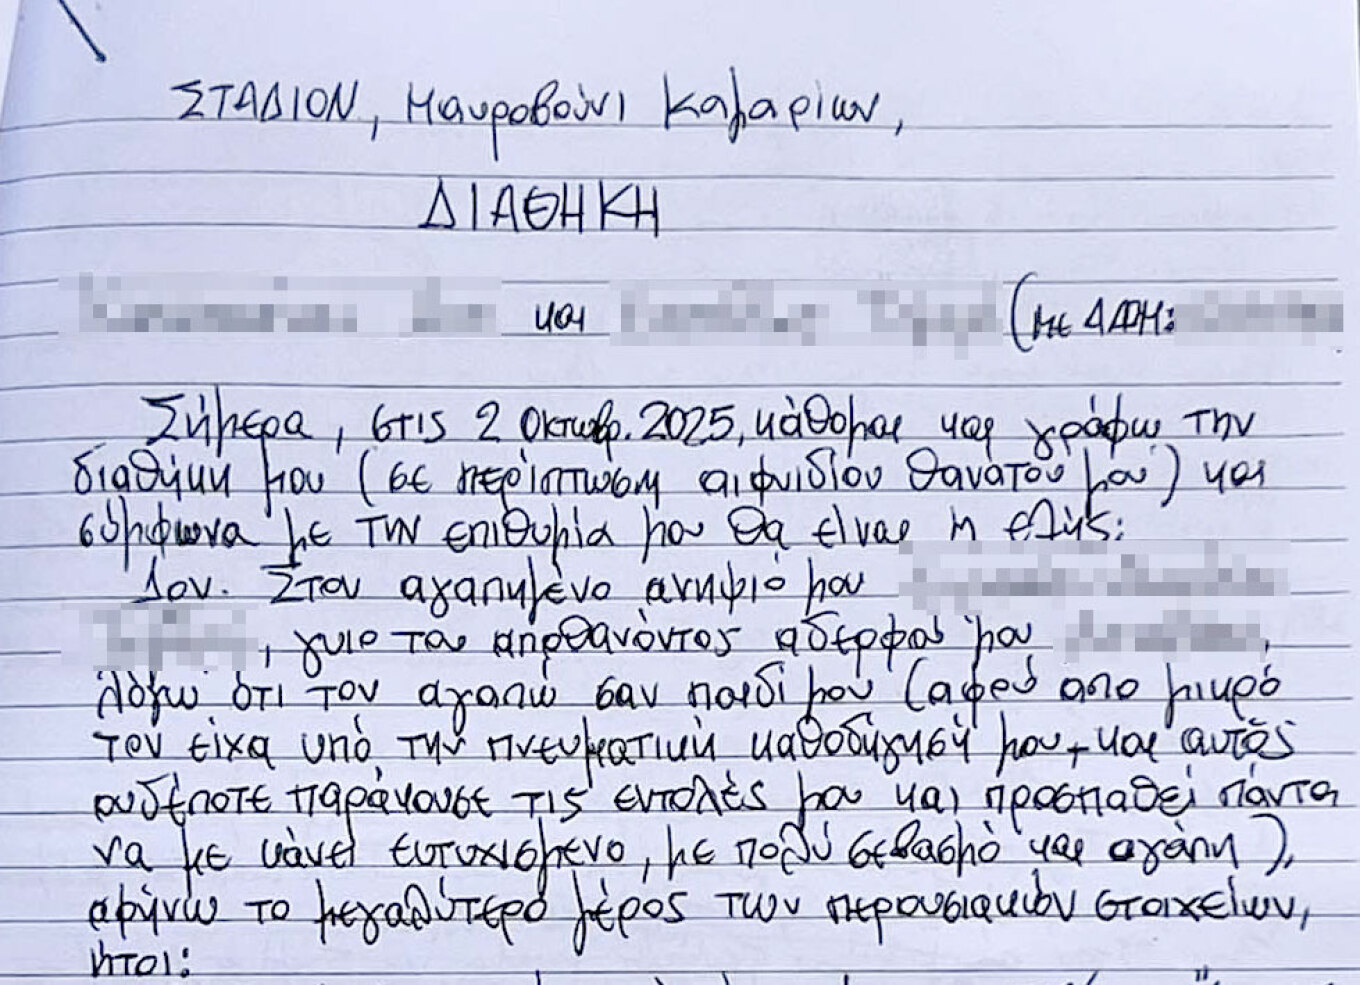 ΣΤΑΔΙΟΝ, Μαυροβούνι Καμαρίων,
ΔΙΑΘΗΚΗ
και (με ΑΦΜ:
Σήμερα, στις 2 Οκτωβρ. 2025, κάθομαι και γράφω την
διαθήκη μου (σε περίπτωση αιφνιδίου θανάτου μου) και
σύμφωνα με την επιθυμία μου θα είναι η εξής:
Στον αγαπημένο ανηψιό μου
, γυιο του αποθανόντος αδερφού μου ,
λόγω ότι τον αγαπώ σαν παιδί μου (αφού απο μικρό
τον είχα υπό την πνευματική καθοδήγησή μου, και αυτός
ουδέποτε παράκουσε τις εντολές μου και προσπαθεί πάντα
να με κάνει ευτυχισμένο, με πολύ σεβασμό και αγάπη),
αφήνω το μεγαλύτερο μέρος των περουσιακών στοιχείων,
ήτοι: